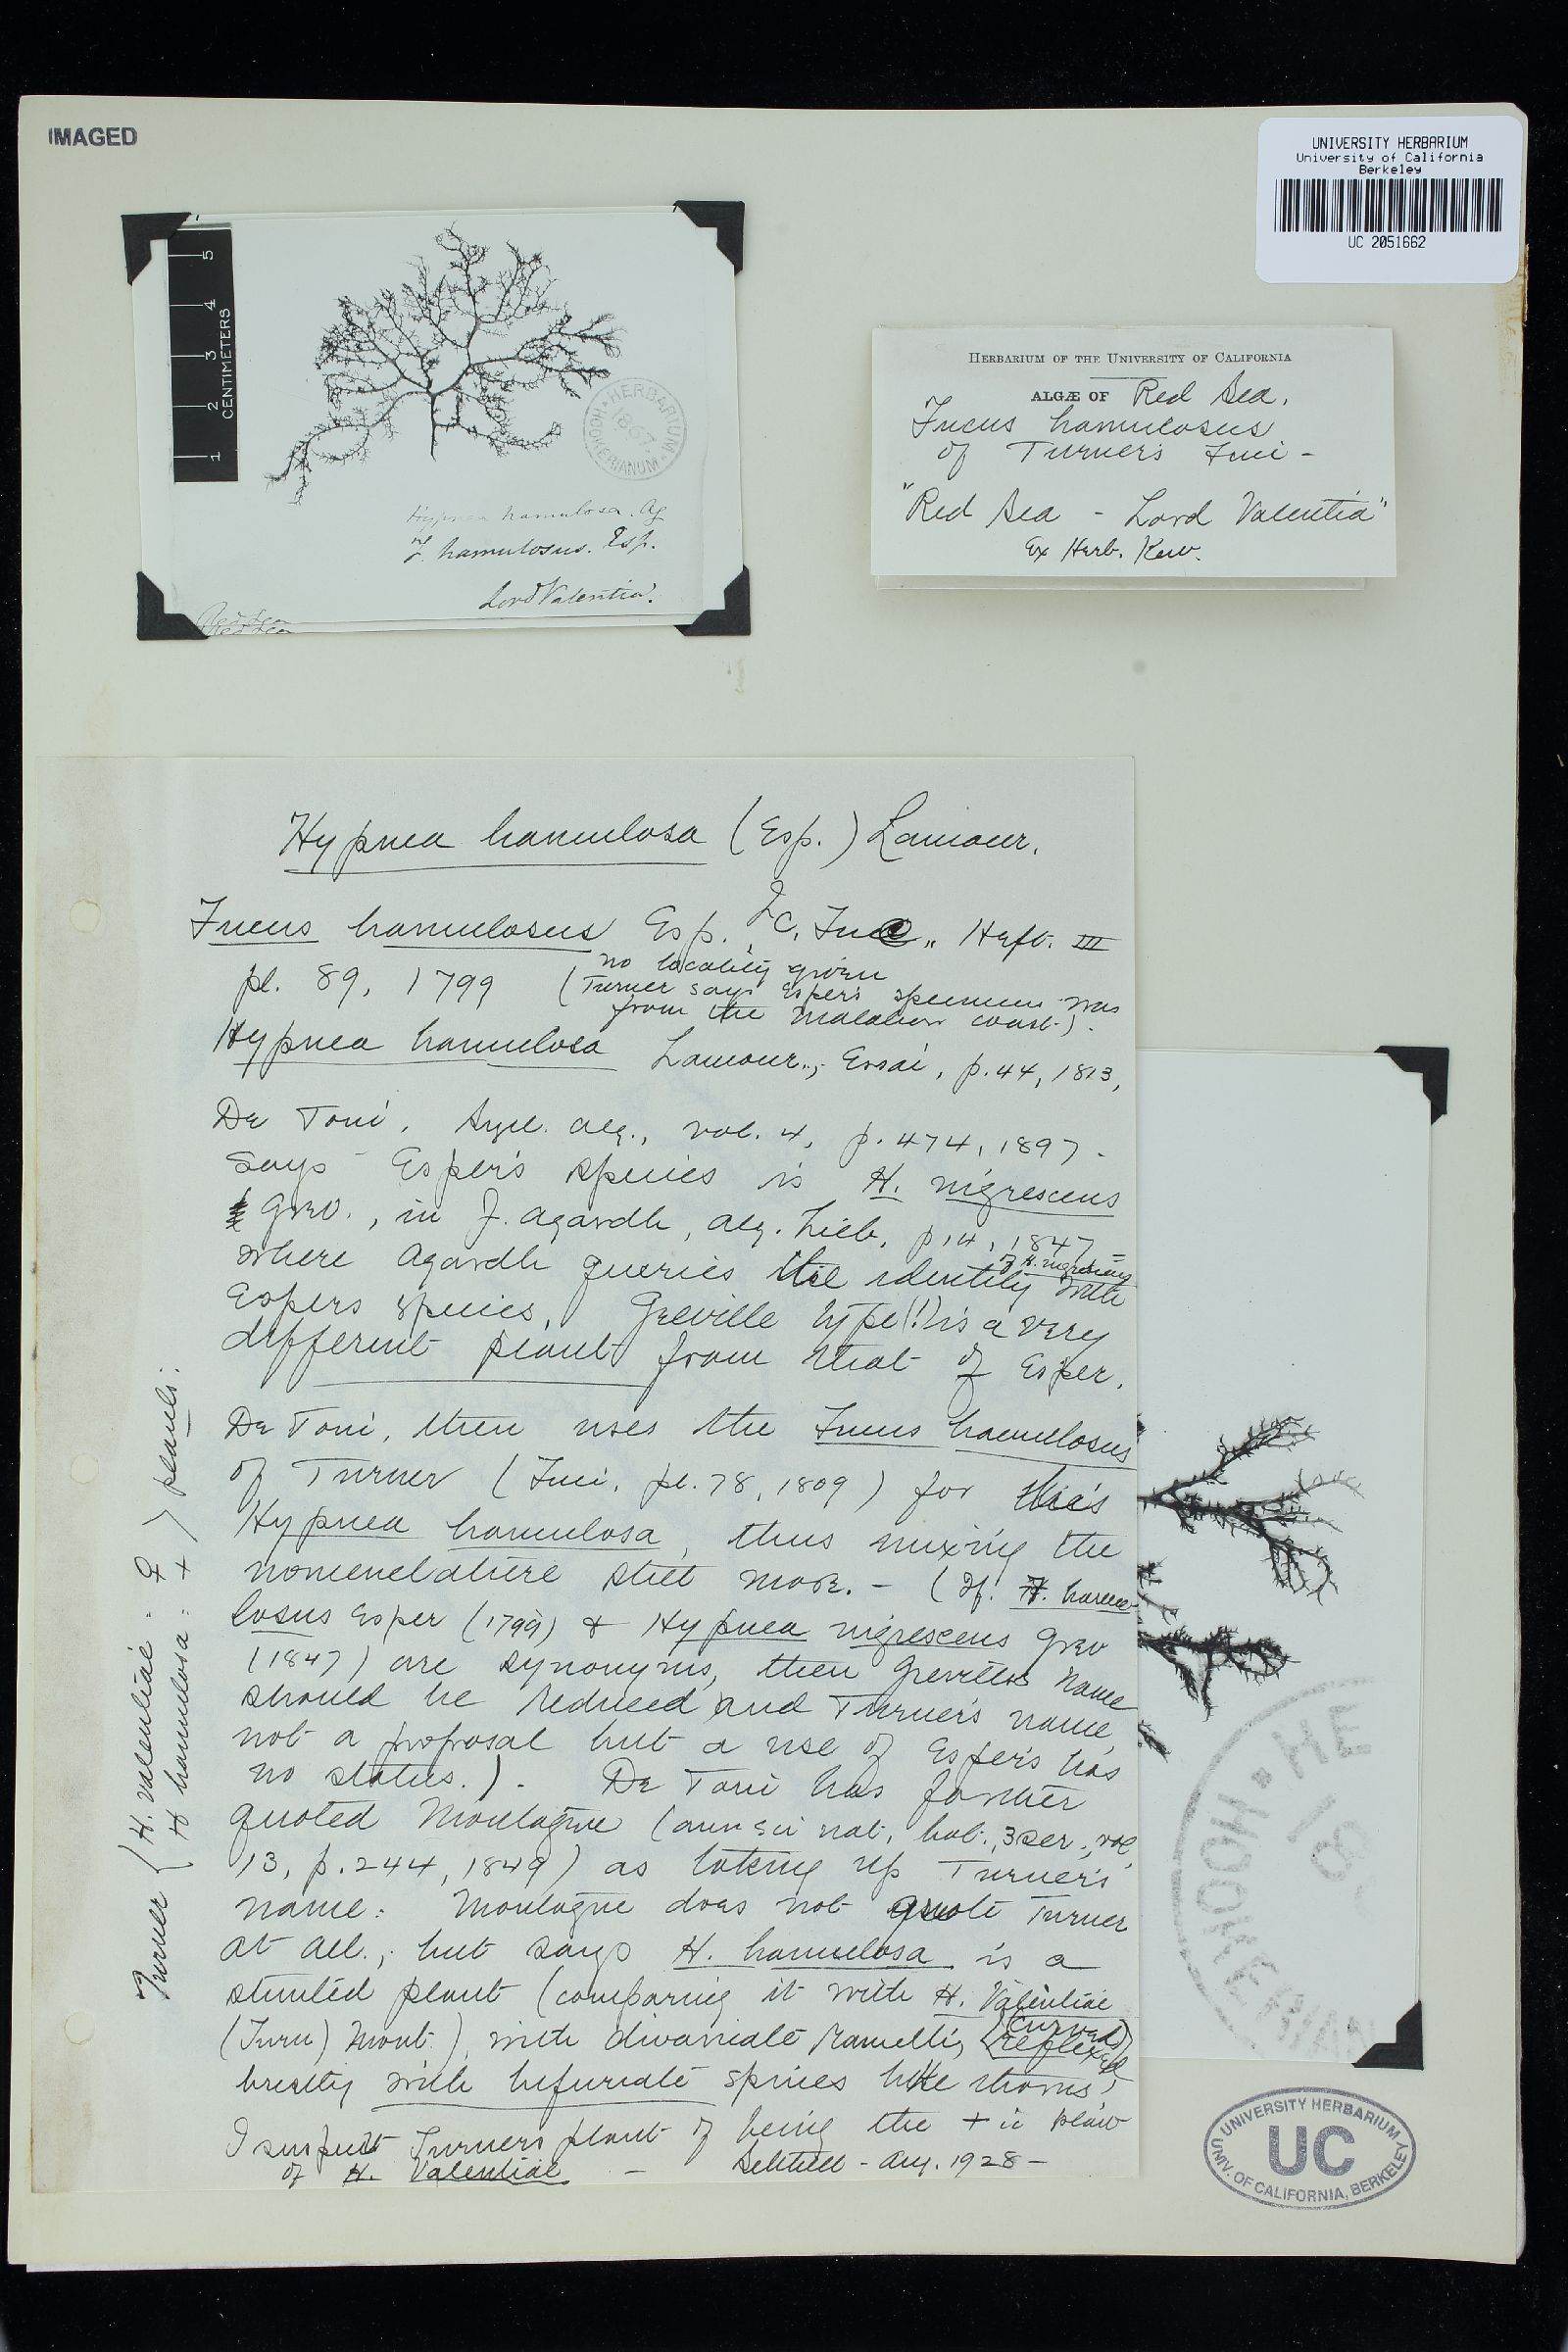 IMAGED
UNIVERSITY HERBARIUM
University of California
Berkeley
UC 2051662
1 2 3 4 5
CENTIMETERS
HERBARIUM HOOKERIANUM
1867
Hypnea hamulosa. Ag
F. hamulosus. Esp.
Lord Valentia.
Red Sea
HERBARIUM OF THE UNIVERSITY OF CALIFORNIA
ALGÆ OF Red Sea.
Fucus hamulosus
of Turner's Fuci -
"Red Sea - Lord Valentia"
Ex Herb. Kew.
Hypnea hamulosa (Esp.) Lamour.
Fucus hamulosus Esp. Ic. Fuc., Heft. III
pl. 89, 1799
no locality given
(Turner says Esper's specimen was
from the Malabar coast).
Hypnea hamulosa Lamour., Essai, p. 44, 1813,
De Toni, Syll. alg., vol. 4, p. 474, 1897 -
says Esper's species is H. nigrescens
Grev., in J. Agardh, alg. Lieb. p. 14, 1847
where Agardh queries the identity of H. nigrescens with
Espers species. Greville type (!) is a very
different plant from that of Esper.
De Toni, then uses the Fucus hamulosus
of Turner (Fuci, pl. 78, 1809) for his
Hypnea hamulosa, thus mixing the
nomenclature still more. - (If F. hamu-
losus Esper (1799) & Hypnea nigrescens Grev
(1847) are synonyms, then Greville's name
should be reduced and Turner's name,
not a proposal but a use of Esper's has
no status.). De Toni has further
quoted Montagne (ann sci nat, bot., 3 ser., vol.
13, p. 244, 1849) as taking up Turner's
name: Montagne does not quote Turner
at all., but says H. hamulosa is a
stunted plant (comparing it with H. Valentiae
(Turn) Mont.), with divaricate ramelli, (curved)
reflexed
with bifurcate spines like thorns,
I suspect Turners plant of being the + ic plant
of H. Valentiae - Setchell - Aug. 1928 -
Turner { H. valentiae : ♀ } plants:
H hamulosa : +
HE
18
HOOKERIAN
UNIVERSITY HERBARIUM
UC
UNIV. OF CALIFORNIA, BERKELEY